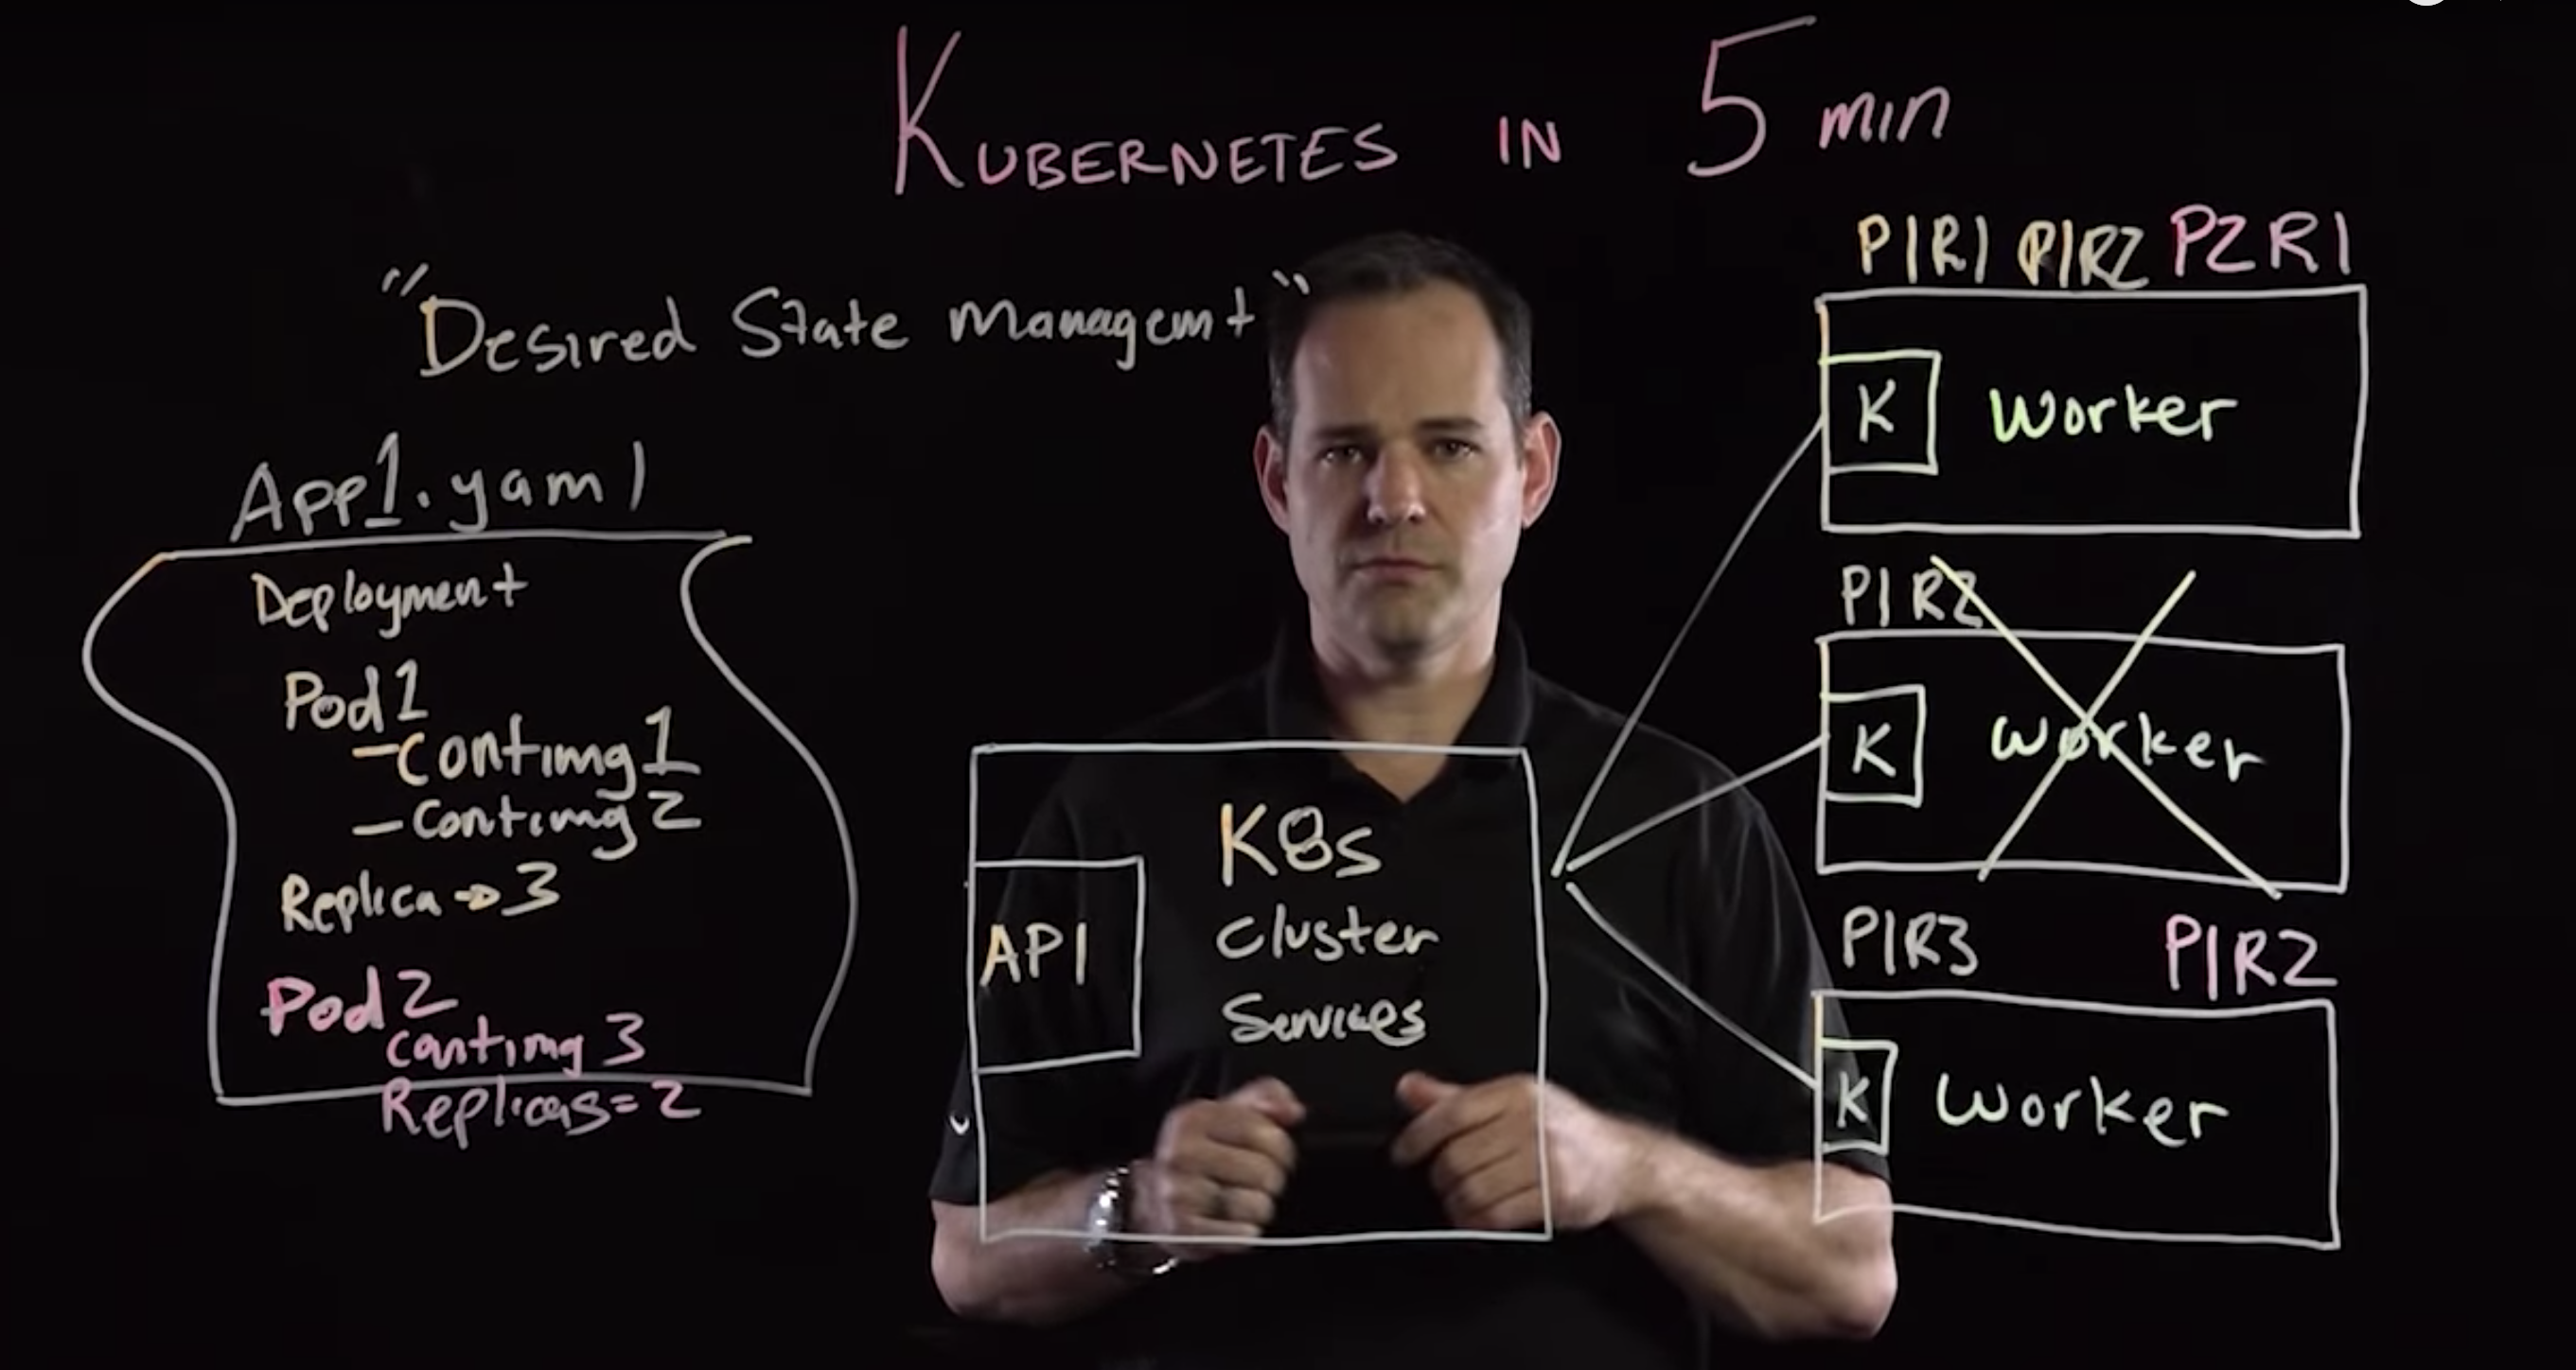 KUBERNETES IN 5 min
"Desired State Managemt"
App1.yaml
Deployment
Pod 1
-Contimg 1
-Contimg 2
Replica → 3
Pod 2
Contimg 3
Replicas = 2
K8s
Cluster
Services
API
P1R1 P1R2 P2R1
K Worker
P1R2
K Worker
P1R3 P1R2
K Worker